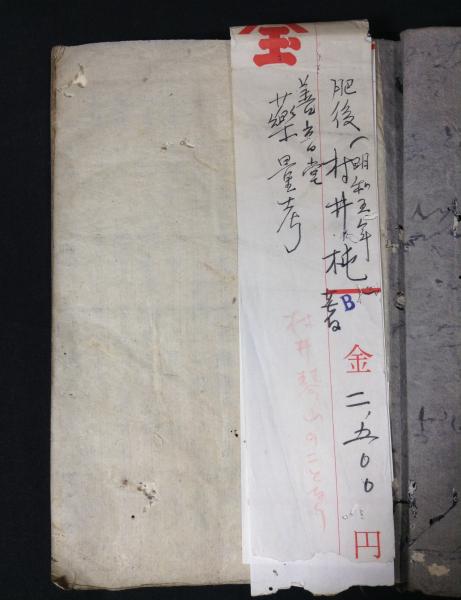 肥後(明和五年)
村井杶著
善音堂
藥量考
B
金二、五〇〇円
村井琴山のことなり